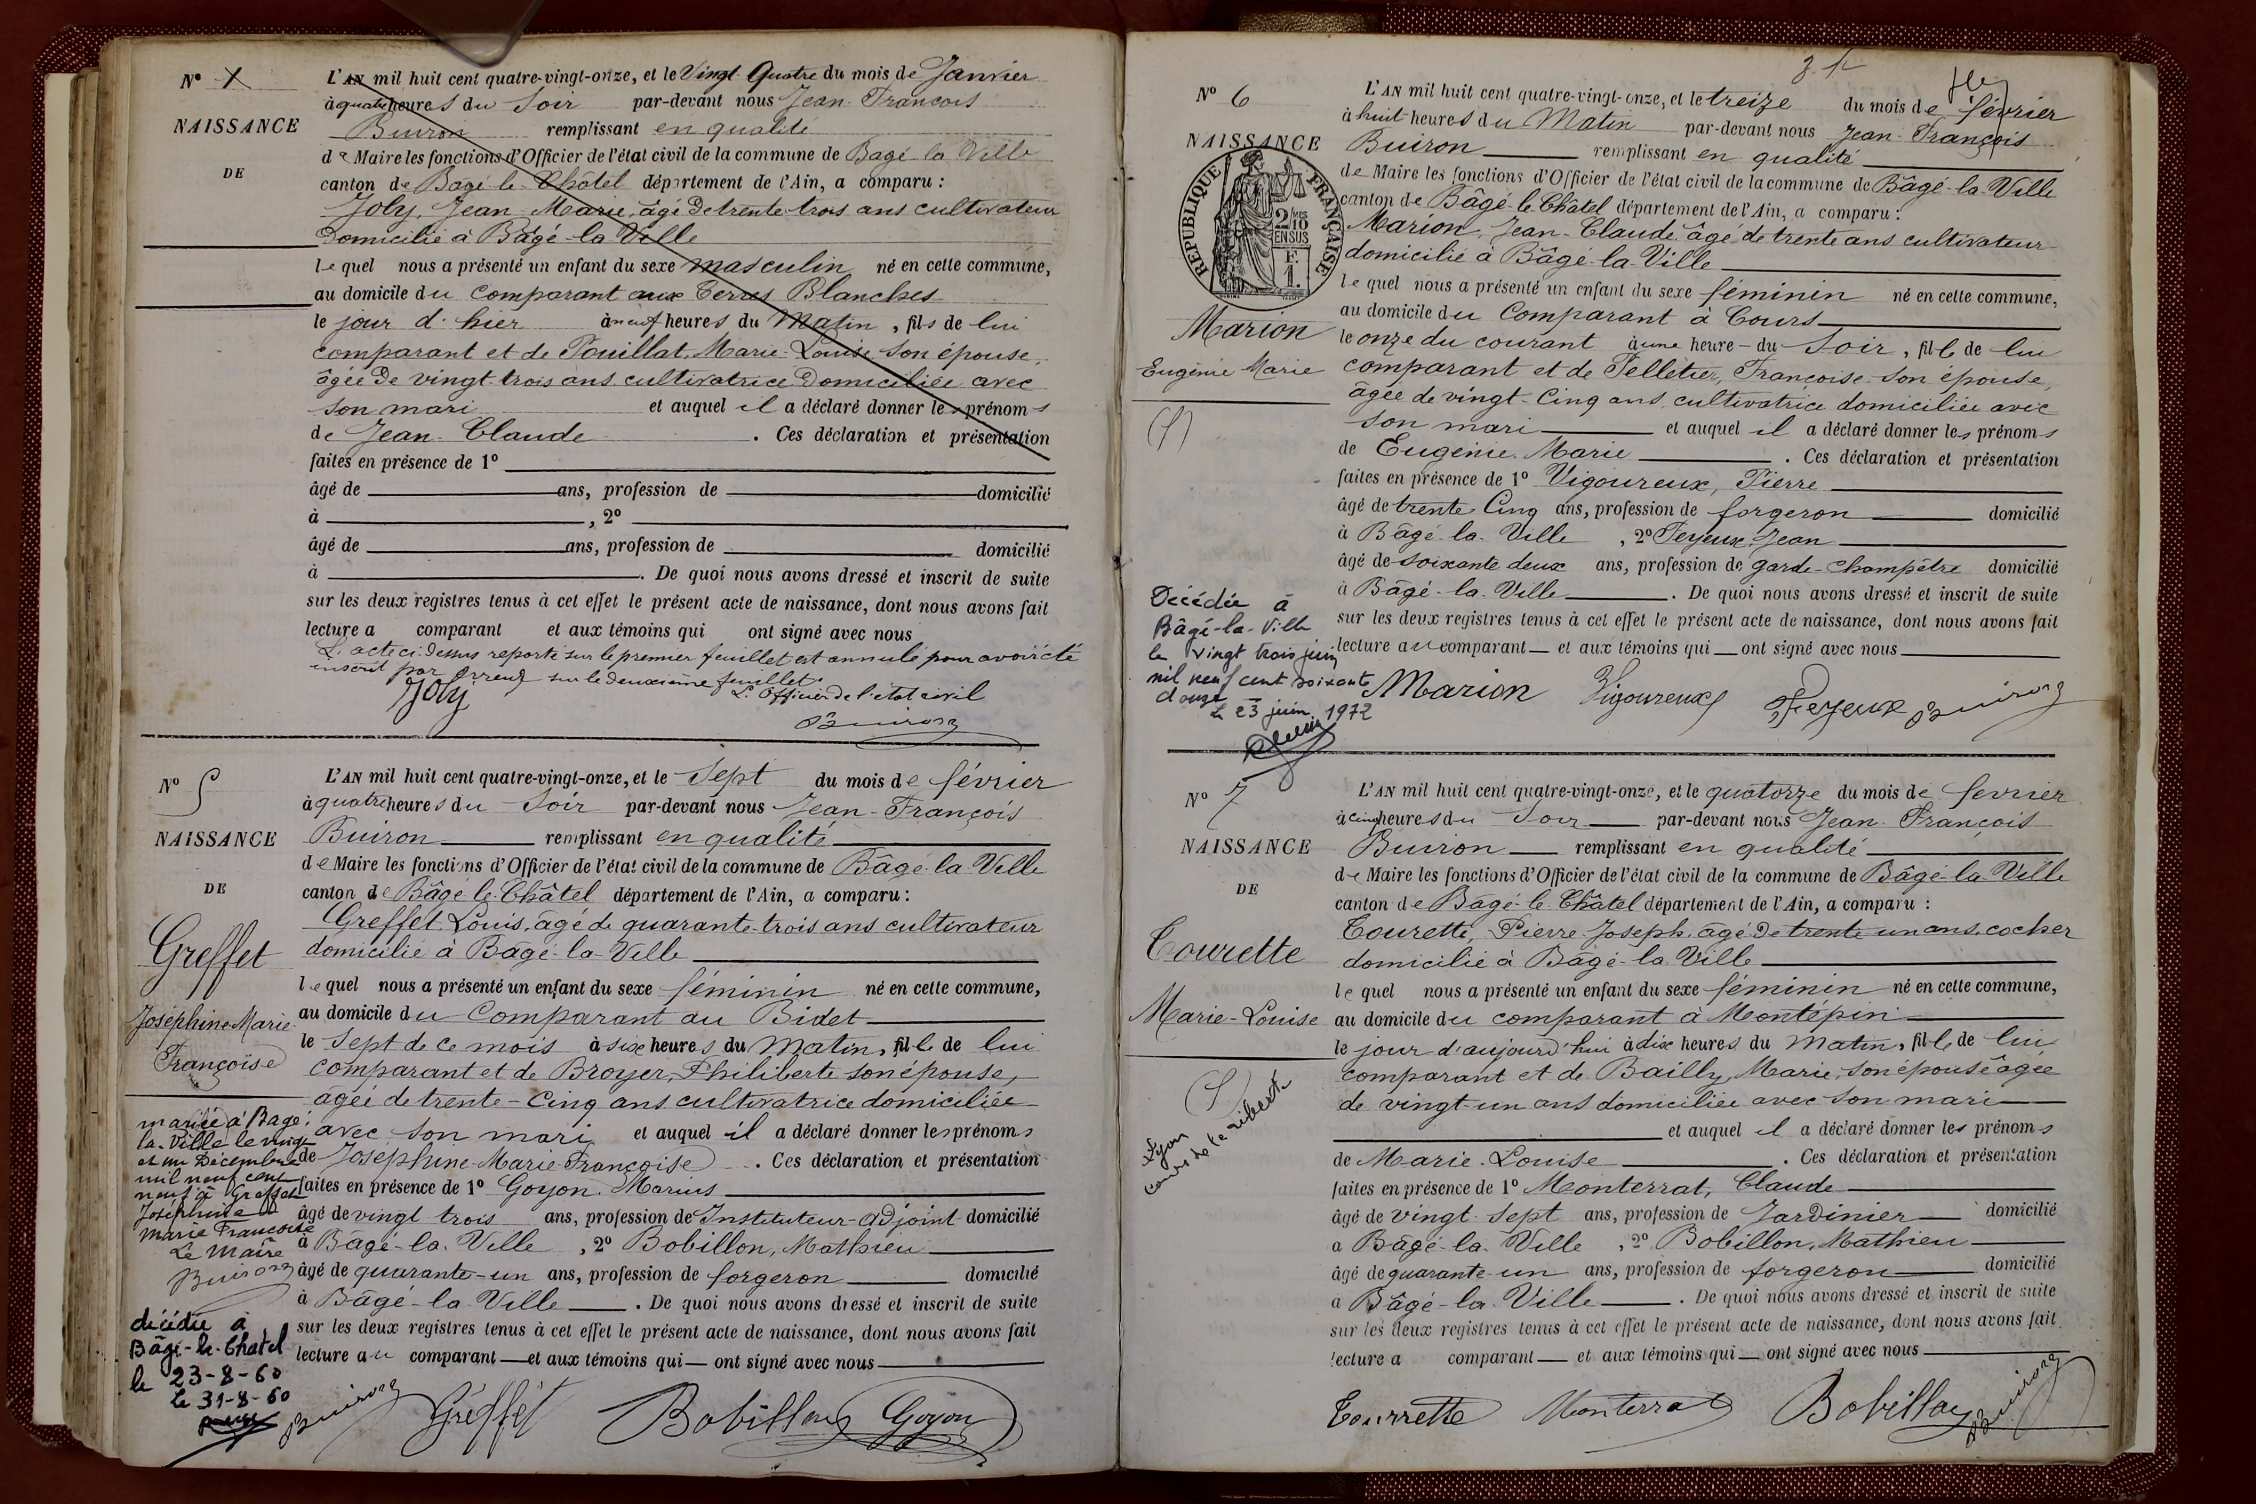 N° 1
NAISSANCE
DE
L'AN mil huit cent quatre-vingt-onze, et le Vingt Quatre du mois de Janvier
à quatre heures du Soir par-devant nous Jean-François
Buiron remplissant en qualité
de Maire les fonctions d'Officier de l'état civil de la commune de Bagé la Ville
canton de Bâgé-le-Châtel département de l'Ain, a comparu :
Joly, Jean-Marie, âgé de trente-trois ans cultivateur
domicilié à Bâgé-la-Ville
lequel nous a présenté un enfant du sexe masculin né en cette commune,
au domicile du comparant aux Terres Blanches
le jour d'hier à neuf heures du Matin, fils de lui
comparant et de Pouillat, Marie-Louise son épouse,
âgée de vingt-trois ans cultivatrice domiciliée avec
son mari et auquel il a déclaré donner les prénoms
de Jean-Claude. Ces déclaration et présentation
faites en présence de 1°
âgé de ans, profession de domicilié
à , 2°
âgé de ans, profession de domicilié
à . De quoi nous avons dressé et inscrit de suite
sur les deux registres tenus à cet effet le présent acte de naissance, dont nous avons fait
lecture a comparant et aux témoins qui ont signé avec nous
L'acte ci-dessus reporté sur le premier feuillet est annulé pour avoir été
inscrit par erreur sur le deuxième feuillet.
L'Officier de l'état civil
Joly
Buiron
N° 5
NAISSANCE
DE
Greffet
Joséphine Marie
Françoise
mariée à Bagé-
la-Ville le vingt
et un Décembre
mil neuf cent
neuf à Greffet
Joséphine
Marie Françoise
Le Maire
Buiron
décédée à
Bâgé-le-Chatel
le 23-8-60
Le 31-8-60
L'AN mil huit cent quatre-vingt-onze, et le Sept du mois de février
à quatre heures du Soir par-devant nous Jean-François
Buiron remplissant en qualité
de Maire les fonctions d'Officier de l'état civil de la commune de Bâgé-la-Ville
canton de Bâgé-le-Châtel département de l'Ain, a comparu :
Greffet Louis, âgé de quarante-trois ans cultivateur
domicilié à Bâgé-la-Ville
lequel nous a présenté un enfant du sexe féminin né en cette commune,
au domicile du Comparant au Bidet
le Sept de ce mois à six heures du Matin, fille de lui
comparant et de Broyer, Philiberte son épouse,
âgée de trente-cinq ans cultivatrice domiciliée
avec son mari et auquel il a déclaré donner les prénoms
de Joséphine Marie Françoise. Ces déclaration et présentation
faites en présence de 1° Goyon, Marius
âgé de vingt trois ans, profession de Instituteur-adjoint domicilié
à Bâgé-la-Ville, 2° Bobillon, Mathieu
âgé de quarante-un ans, profession de forgeron domicilié
à Bâgé-la-Ville. De quoi nous avons dressé et inscrit de suite
sur les deux registres tenus à cet effet le présent acte de naissance, dont nous avons fait
lecture au comparant et aux témoins qui ont signé avec nous
Buiron Gréffét Bobillon Goyon
N° 6
NAISSANCE
RÉPUBLIQUE FRANÇAISE
2/10
EN SUS
F.
1.
Marion
Eugénie Marie
Décédée à
Bâgé-la-Ville
le vingt trois juin
mil neuf cent soixante
douze
le 23 juin 1972
L'AN mil huit cent quatre-vingt-onze, et le treize du mois de février
à huit heures du Matin par-devant nous Jean-François
Buiron remplissant en qualité
de Maire les fonctions d'Officier de l'état civil de la commune de Bâgé-la-Ville
canton de Bâgé-le-Châtel département de l'Ain, a comparu :
Marion, Jean-Claude âgé de trente ans cultivateur
domicilié à Bâgé-la-Ville
lequel nous a présenté un enfant du sexe féminin né en cette commune,
au domicile du Comparant à Cours
le onze du courant à une heure du Soir, fille de lui
comparant et de Pelletier, Françoise son épouse,
âgée de vingt-cinq ans, cultivatrice domiciliée avec
son mari et auquel il a déclaré donner les prénoms
de Eugénie Marie. Ces déclaration et présentation
faites en présence de 1° Vigoureux, Pierre
âgé de trente Cinq ans, profession de forgeron domicilié
à Bâgé-la-Ville, 2° Feyeux, Jean
âgé de soixante deux ans, profession de garde-champêtre domicilié
à Bâgé-la-Ville. De quoi nous avons dressé et inscrit de suite
sur les deux registres tenus à cet effet le présent acte de naissance, dont nous avons fait
lecture au comparant et aux témoins qui ont signé avec nous
Marion Vigoureux Feyeux Buiron
N° 7
NAISSANCE
DE
Tourette
Marie-Louise
Lyon
cours de la Liberté
L'AN mil huit cent quatre-vingt-onze, et le quatorze du mois de fevrier
à cinq heures du Soir par-devant nous Jean-François
Buiron remplissant en qualité
de Maire les fonctions d'Officier de l'état civil de la commune de Bâgé-la-Ville
canton de Bâgé-le-Châtel département de l'Ain, a comparu :
Tourette, Pierre-Joseph, âgé de trente un ans, cocher
domicilié à Bâgé-la-Ville
lequel nous a présenté un enfant du sexe féminin né en cette commune,
au domicile du comparant à Montépin
le jour d'aujourd'hui à dix heures du Matin, fille de lui
comparant et de Bailly, Marie, son épouse âgée
de vingt-un ans domiciliée avec son mari
et auquel il a déclaré donner les prénoms
de Marie-Louise. Ces déclaration et présentation
faites en présence de 1° Monterrat, Claude
âgé de vingt-sept ans, profession de Jardinier domicilié
à Bâgé-la-Ville, 2° Bobillon, Mathieu
âgé de quarante-un ans, profession de forgeron domicilié
à Bâgé-la-Ville. De quoi nous avons dressé et inscrit de suite
sur les deux registres tenus à cet effet le présent acte de naissance, dont nous avons fait
lecture a comparant et aux témoins qui ont signé avec nous
Tourrette Monterrat Bobillon Buiron